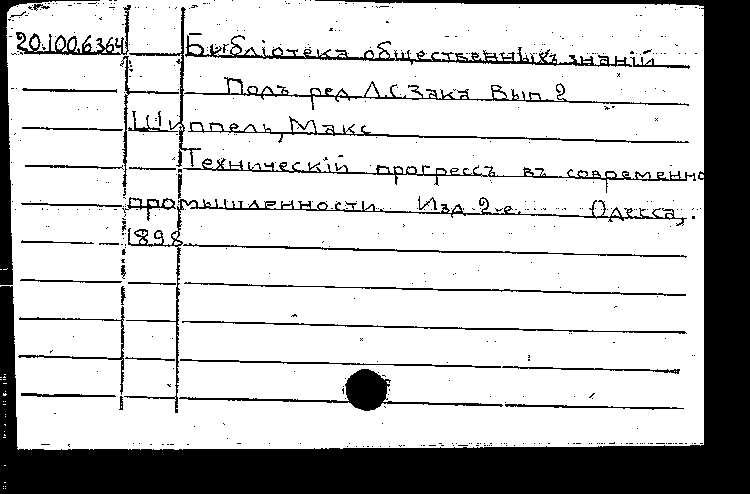 20.100.6364 Библіотека общественныхъ знаній
Подъ ред. Л.С. Зака Вып. 2
Шиппель, Макс
Техническій прогрессъ въ современно
промышленности. Изд 2-е. Одесса,
1898